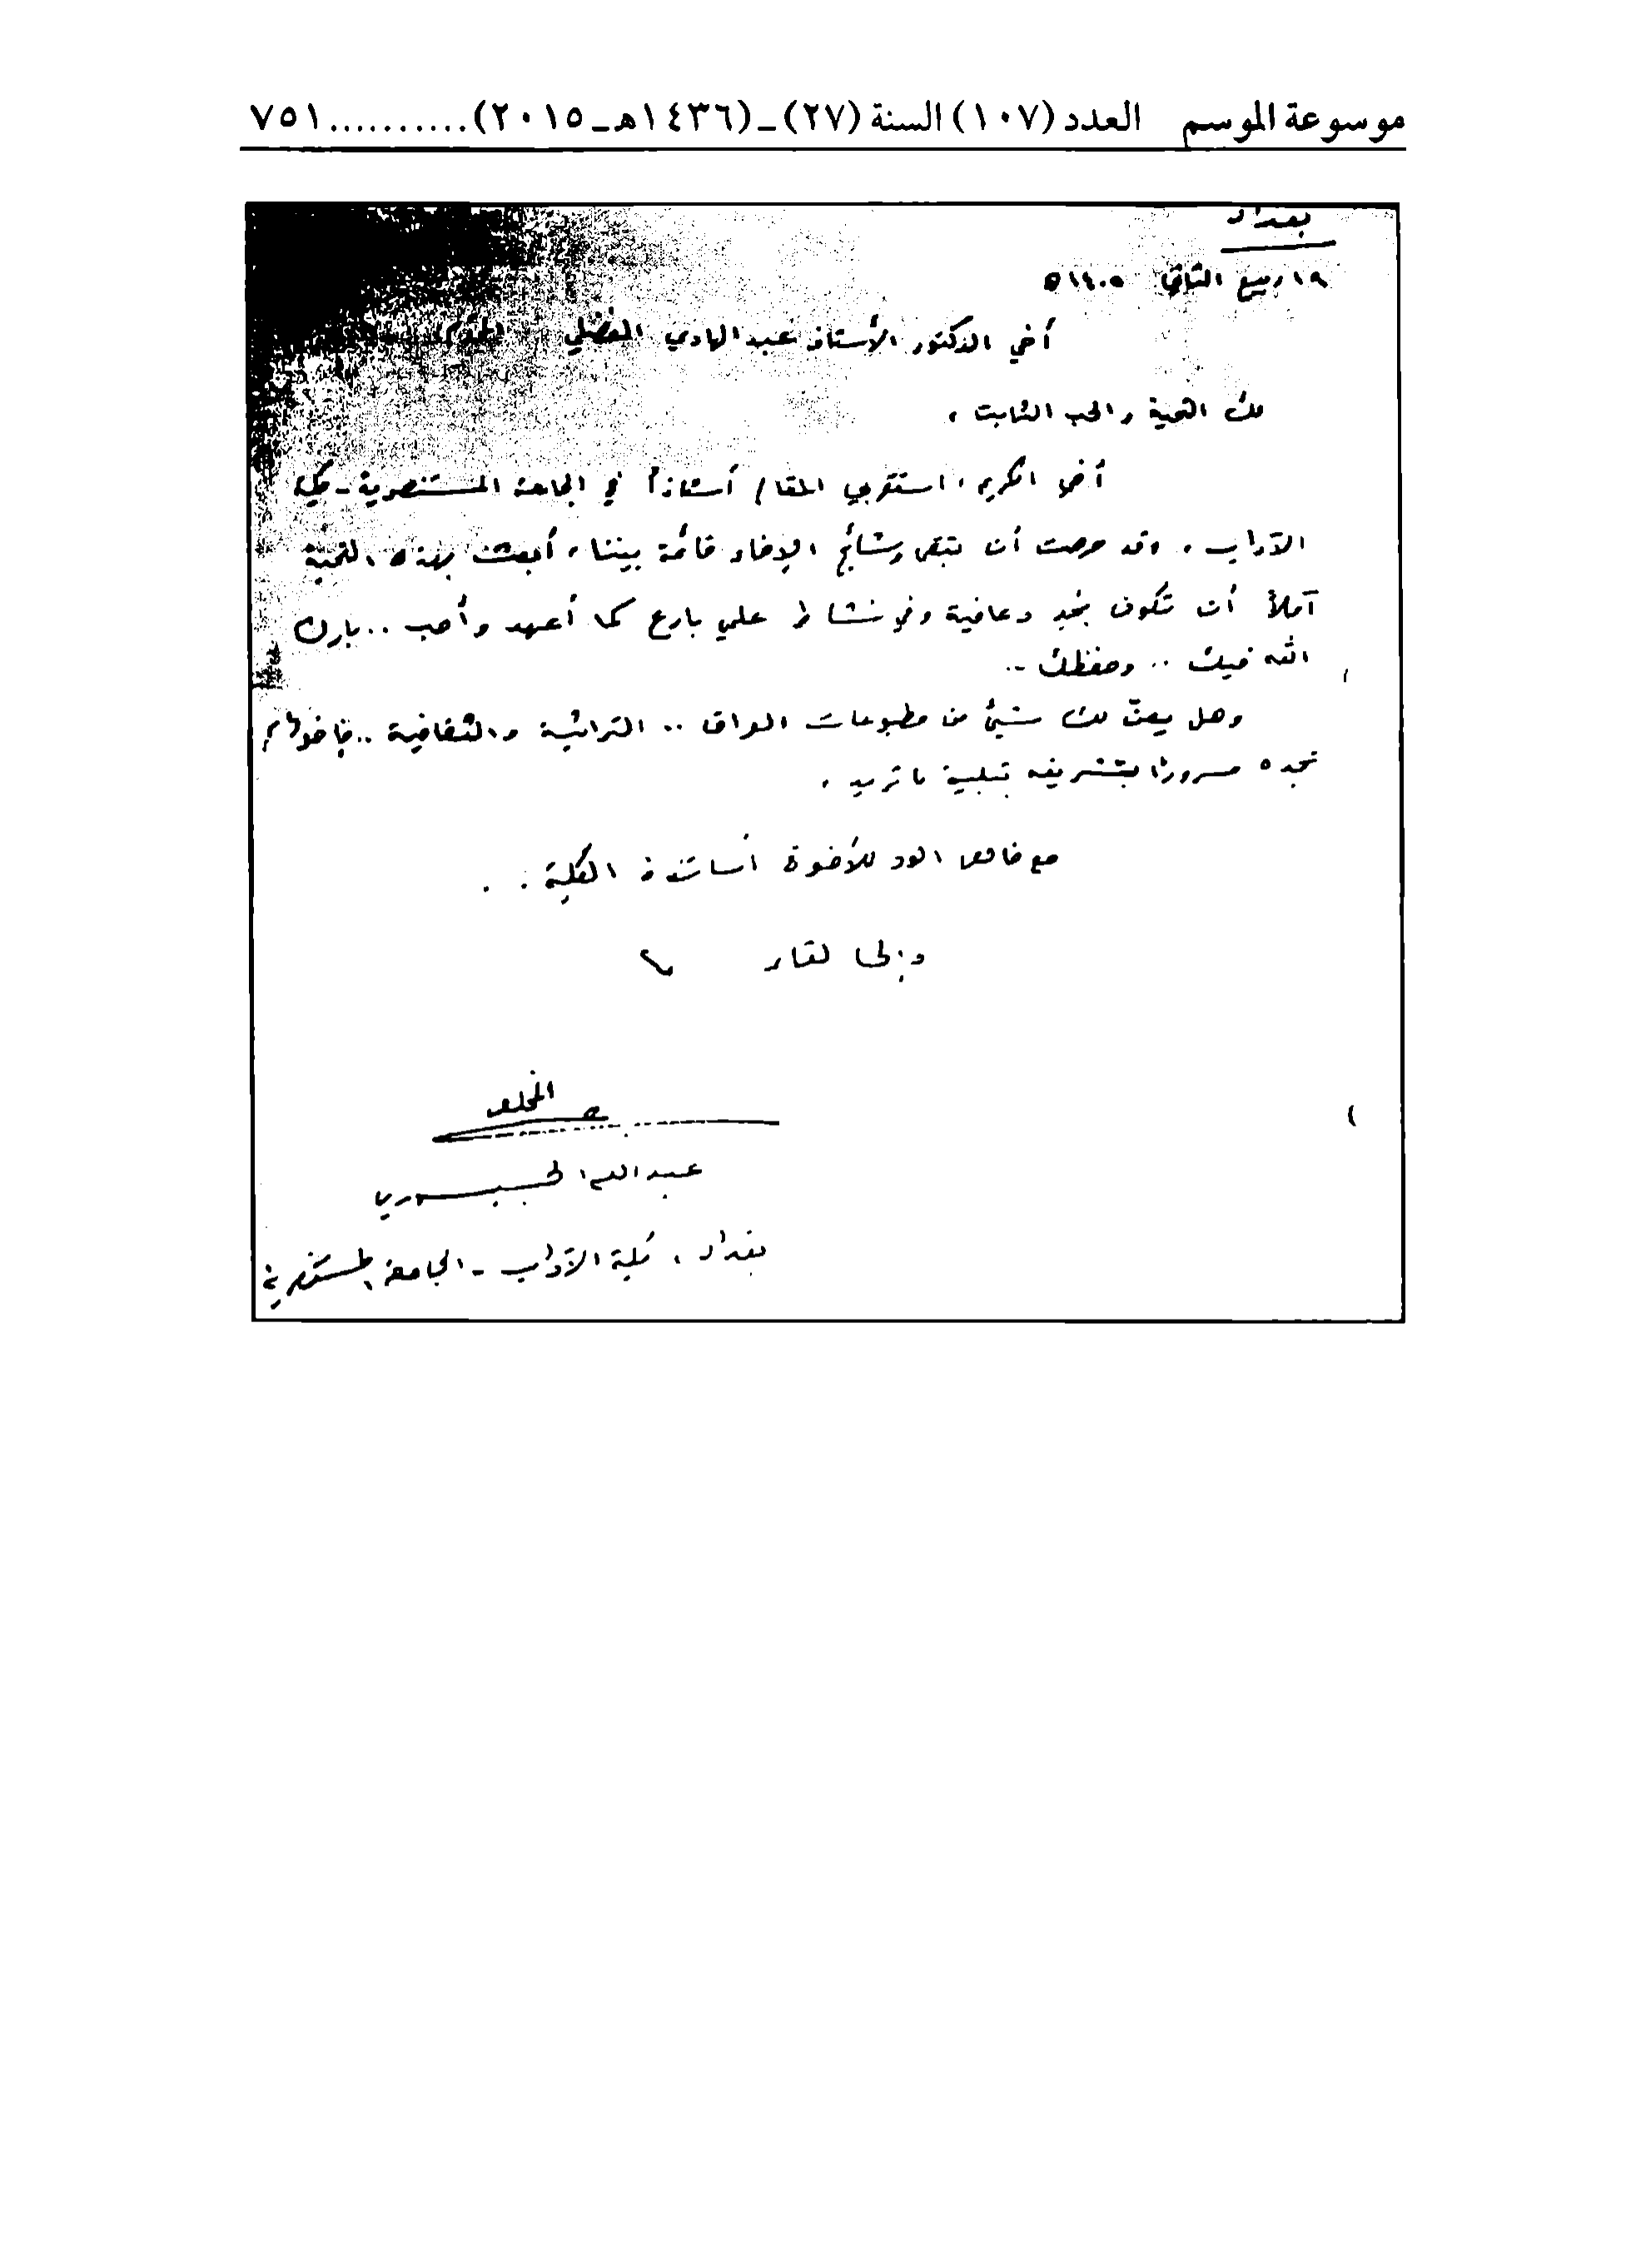 موسوعة الموسم العدد (١٠٧) السنة (٢٧) ـ (١٤٣٦هـ ـ ٢٠١٥)..........٧٥١
بغداد
١٩ ربيع الثاني ١٤٠٥ه
أخي الدكتور الأستاذ عبد الهادي الفضلي المحترم
لك التحية والحب الثابت،
أخي الكريم، استقر بي المقام أستاذاً في الجامعة المستنصرية - كلية
الآداب، وقد حرصت أن تبقى وشائج الإخاء قائمة بيننا، أبعث بهذه التحية
آملاً أن تكون بخير وعافية وفي نشاط علمي بارع كما أعهد وأحب .. بارك
الله فيك .. وحفظك ..
وهل يعنّ لك شيئ من مطبوعات العراق .. التراثية والثقافية ..
تجده مسروراً بتشريفه بتلبية ما تريد .
مع خالص الود للأخوة أساتذة الكلية . .
وإلى لقاء
المخلص
عبدالله الجبوري
بغداد، كلية الآداب - الجامعة المستنصرية